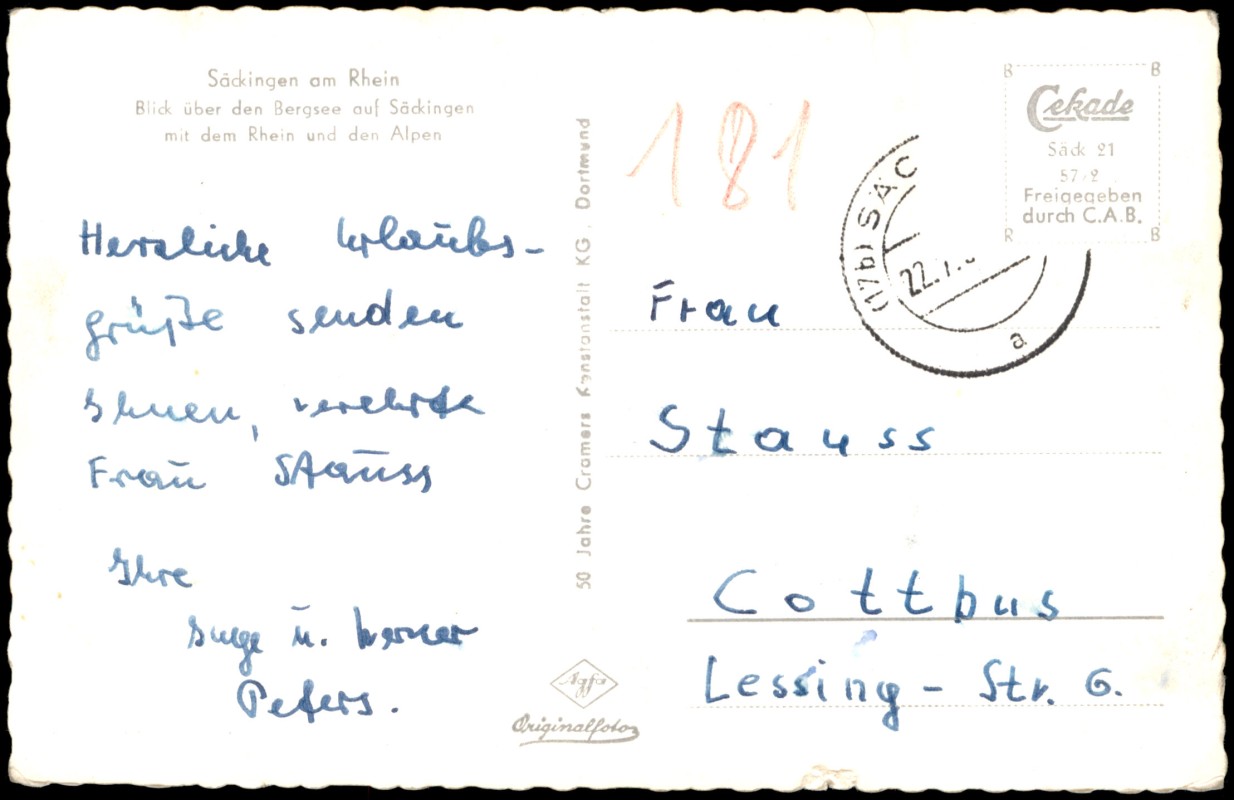 Säckingen am Rhein
Blick über den Bergsee auf Säckingen
mit dem Rhein und den Alpen
Herzliche Urlaubs-
grüße senden
Ihnen, verehrte
Frau Stauss
Ihre
Inge u. Werner
Peters.
50 Jahre Cramers Kunstanstalt KG, Dortmund
Agfa
Originalfoto
181
B B
Cekade
Säck 21
Freigegeben
durch C.A.B.
R B
(17b) SÄC
22.
a
Frau
Stauss
Cottbus
Lessing - Str. 6.